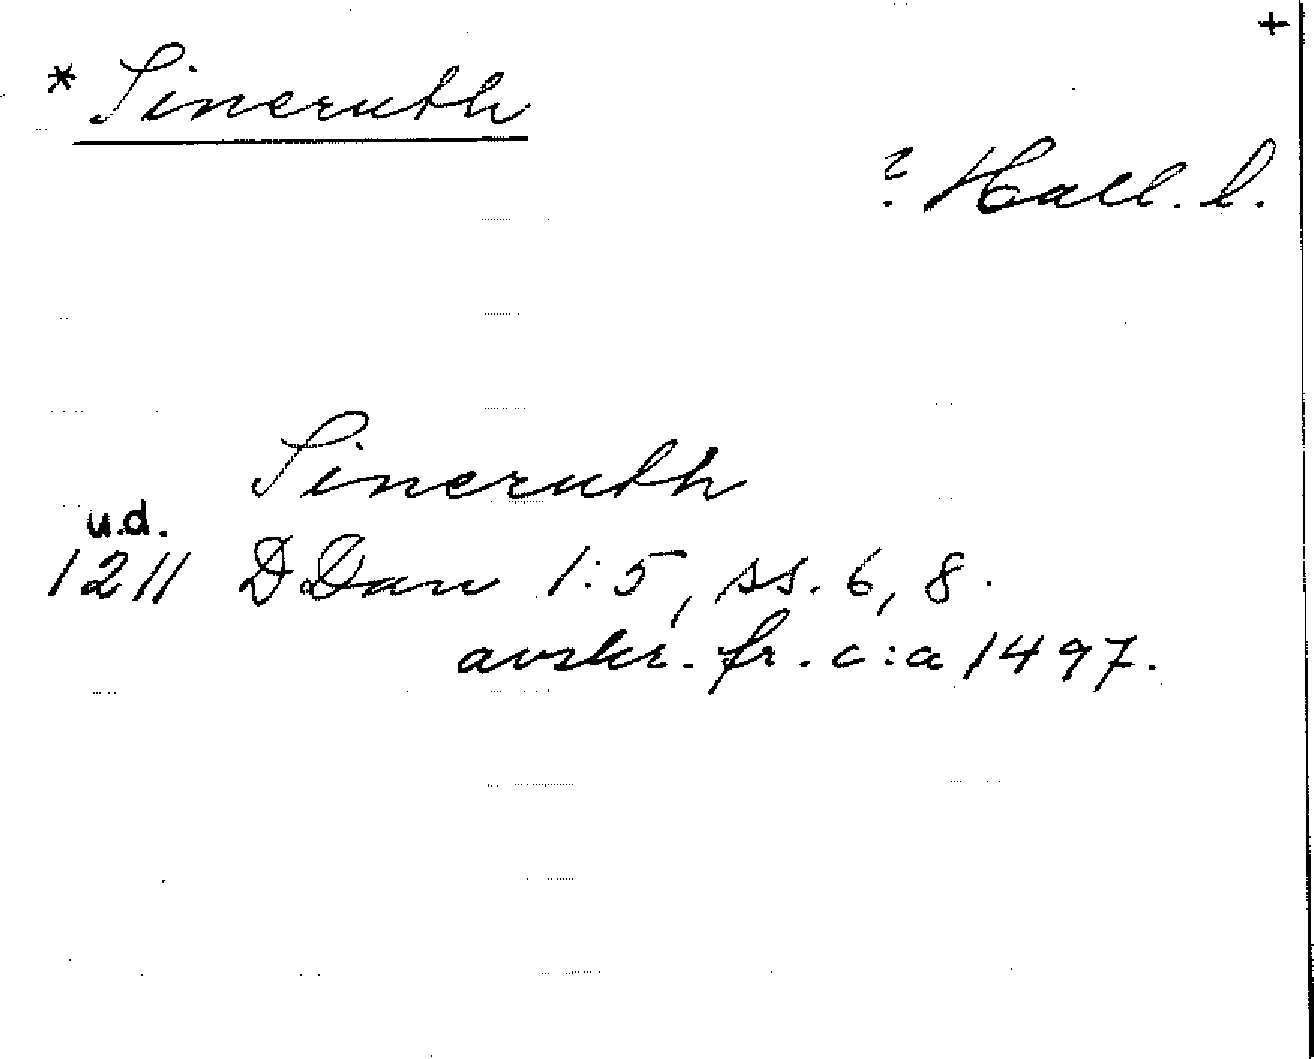 +
* Sineruth
? Hall. l.
Sineruth
u.d.
1211 DDan 1:5, ss. 6, 8.
avskr. fr. c:a 1497.